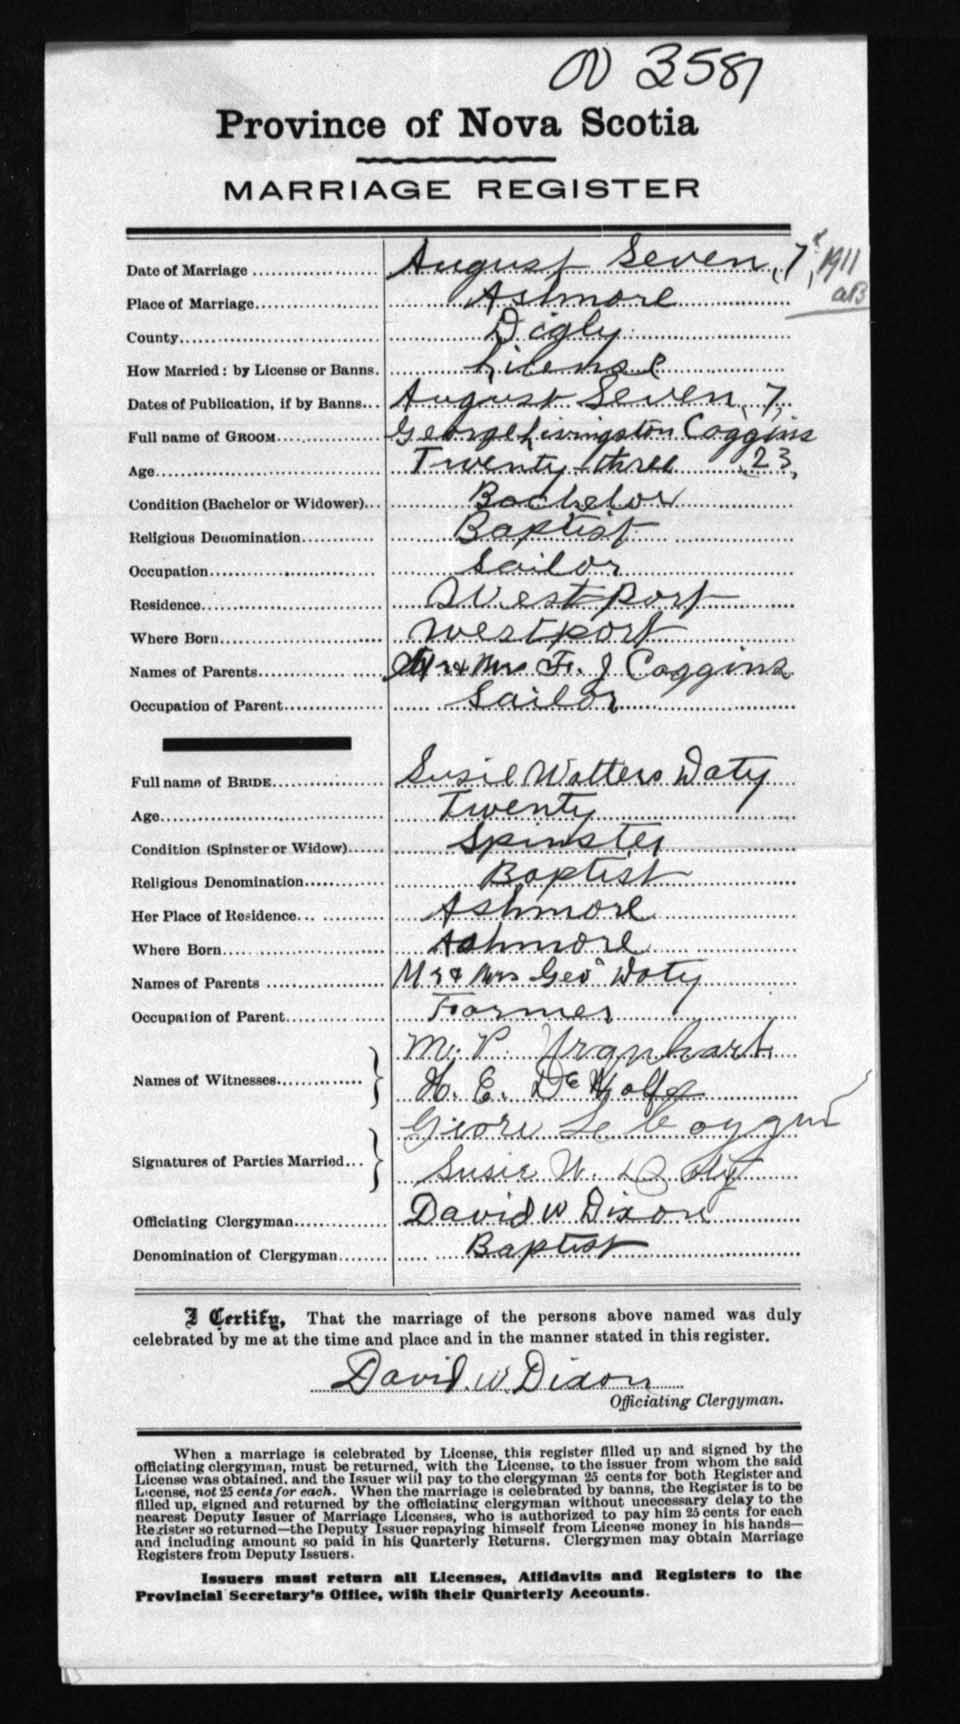 3587
Province of Nova Scotia
MARRIAGE REGISTER
Date of Marriage August Seven, 7, 1911
Place of Marriage Ashmore
County Digby
How Married: by License or Banns. License
Dates of Publication, if by Banns August Seven, 7,
Full name of GROOM George Livingston Coggins
Age Twenty three 23,
Condition (Bachelor or Widower) Bachelor
Religious Denomination Baptist
Occupation Sailor
Residence Westport
Where Born Westport
Names of Parents Mr & Mrs J Coggins
Occupation of Parent Sailor
Full name of BRIDE Susie Walters Doty
Age Twenty
Condition (Spinster or Widow) Spinster
Religious Denomination Baptist
Her Place of Residence Ashmore
Where Born Ashmore
Names of Parents Mr & Mrs Geo Doty
Occupation of Parent Farmer
M. P. Urquhart
Names of Witnesses
H. E. DeWolfe
Signatures of Parties Married
Susie W. Doty
Officiating Clergyman David W Dixon
Denomination of Clergyman Baptist
I Certify, That the marriage of the persons above named was duly
celebrated by me at the time and place and in the manner stated in this register.
David W. Dixon
Officiating Clergyman.
When a marriage is celebrated by License, this register filled up and signed by the
officiating clergyman, must be returned, with the License, to the issuer from whom the said
License was obtained, and the Issuer will pay to the clergyman 25 cents for both Register and
License, not 25 cents for each. When the marriage is celebrated by banns, the Register is to be
filled up, signed and returned by the officiating clergyman without unnecessary delay to the
nearest Deputy Issuer of Marriage Licenses, who is authorized to pay him 25 cents for each
Register so returned—the Deputy Issuer repaying himself from License money in his hands—
and including amount so paid in his Quarterly Returns. Clergymen may obtain Marriage
Registers from Deputy Issuers.
Issuers must return all Licenses, Affidavits and Registers to the
Provincial Secretary's Office, with their Quarterly Accounts.